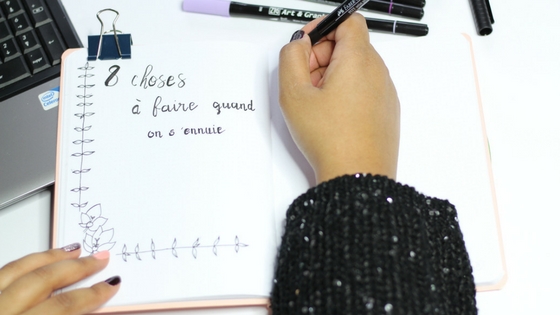 8 choses
à faire quand
on s'ennuie
Art & Graphic